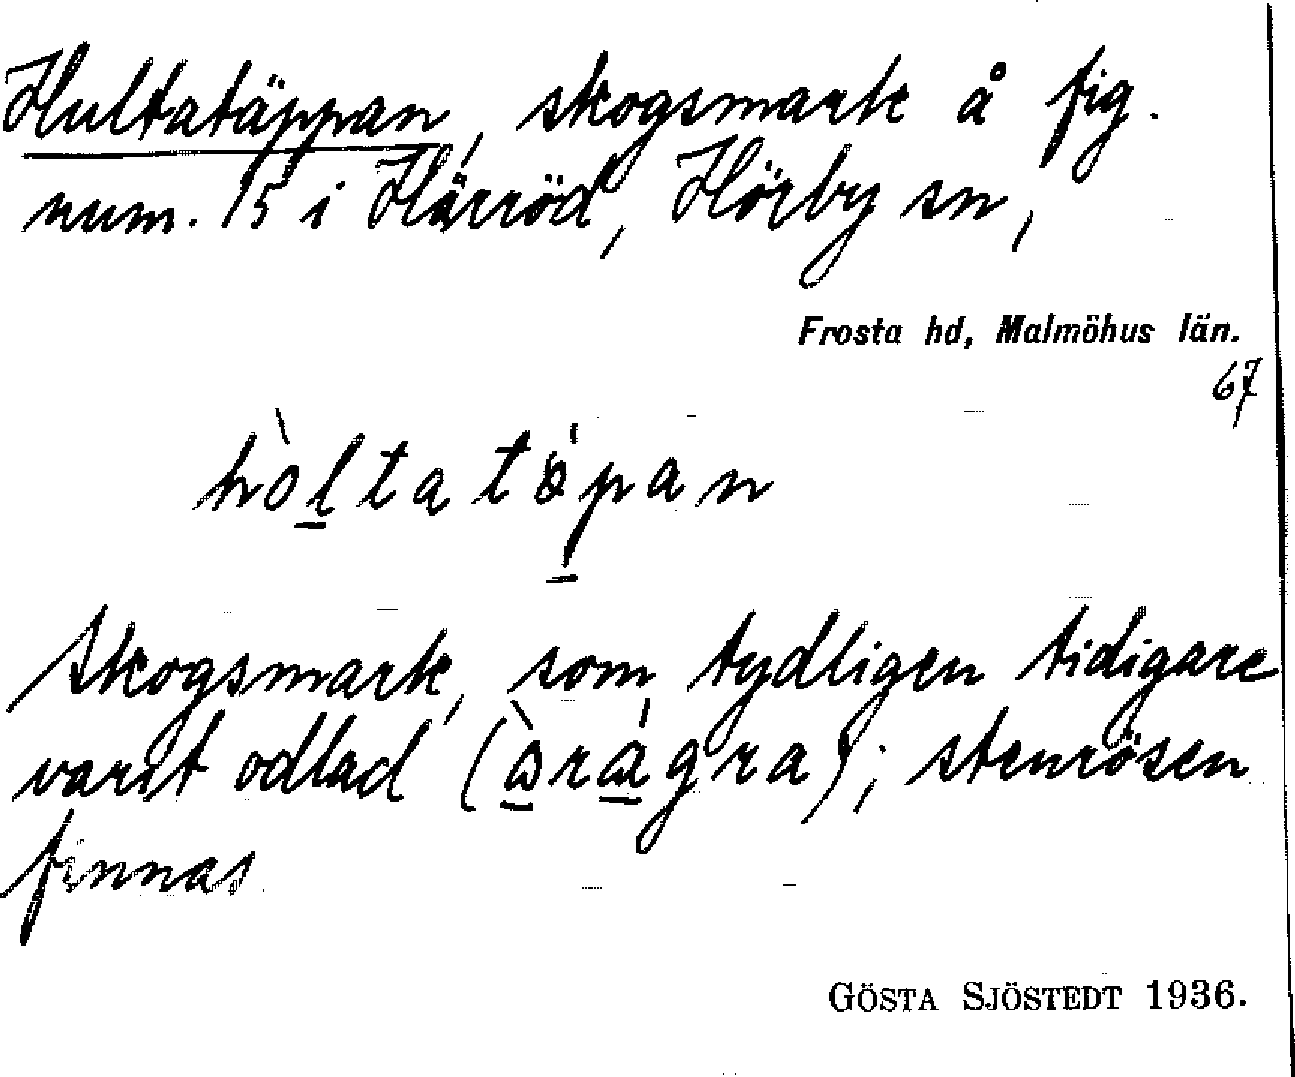 Hultatäppan, skogsmark å fig.
num. 15 i Härröd, Hörby sn,
Frosta hd, Malmöhus län.
67
Skogsmark, som tydligen tidigare
varit odlad (); stenrösen
finnas
GÖSTA SJÖSTEDT 1936.